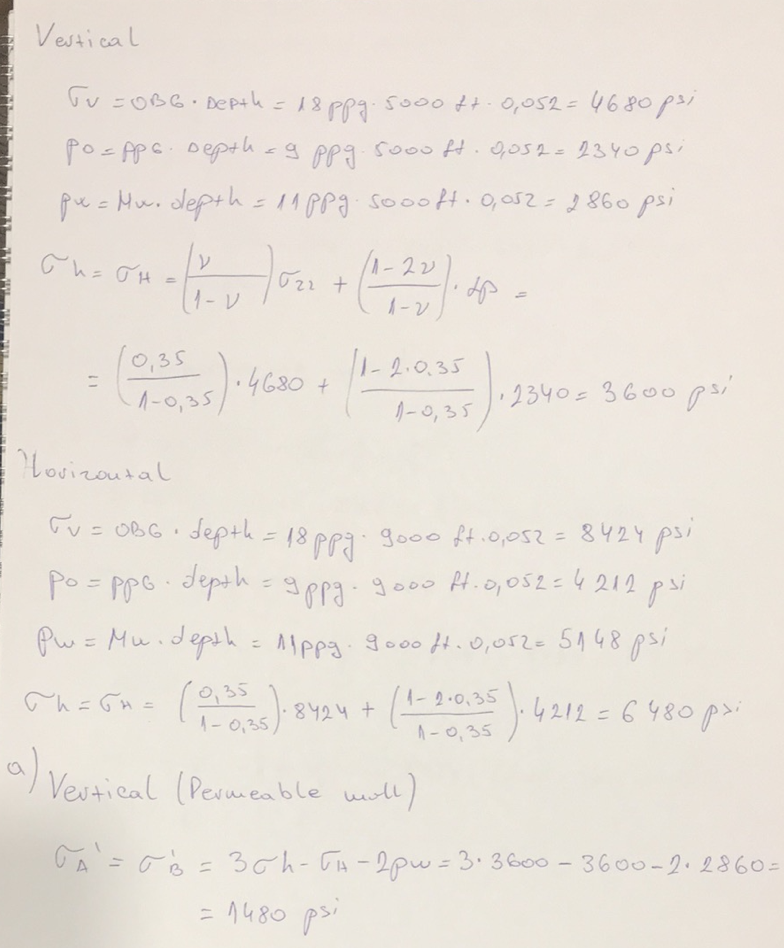 Vertical
σv = OBG · Depth = 18 ppg · 5000 ft · 0,052 = 4680 psi
po = PPG · Depth = 9 ppg · 5000 ft · 0,052 = 2340 psi
pw = Mw · depth = 11 ppg · 5000 ft · 0,052 = 2860 psi
σh = σH = (ν / 1-ν) σzz + (1-2ν / 1-ν) · dp =
= (0,35 / 1-0,35) · 4680 + (1-2·0.35 / 1-0,35) · 2340 = 3600 psi
Horizontal
σv = OBG · depth = 18 ppg · 9000 ft · 0,052 = 8424 psi
po = ppG · depth = 9 ppg · 9000 ft · 0,052 = 4212 psi
pw = Mw · depth = 11 ppg · 9000 ft · 0,052 = 5148 psi
σh = σH = (0,35 / 1-0,35) · 8424 + (1-2·0,35 / 1-0,35) · 4212 = 6480 psi
a) Vertical (Permeable wall)
σA' = σB' = 3σh - σH - 2pw = 3·3600 - 3600 - 2·2860 =
= 1480 psi